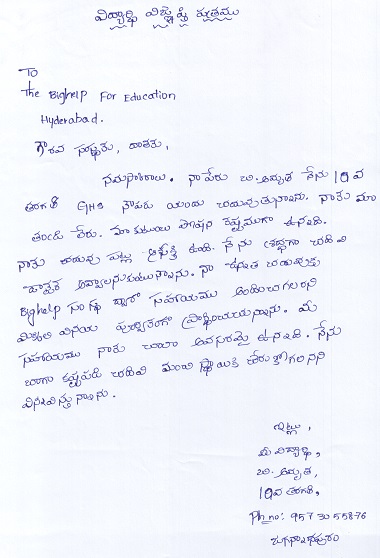 విద్యార్థి విజ్ఞప్తి పత్రము
To
The Bighelp For Education
Hyderabad.
గౌరవ సభ్యులు, దాతలు,
నమస్కారాలు. నా పేరు బి. అమృత నేను 10వ
తరగతి GHS నౌపడ యందు చదువుతున్నాను. నాకు మా
తండ్రి లేరు. మా కుటుంబ పోషణ కష్టముగా ఉన్నది.
నాకు చదువు పట్ల ఆసక్తి ఉంది. నేను శ్రద్ధగా చదివి
అవ్వాలనుకుంటున్నాను. నా ఉన్నత చదువుకు
Bighelp సంస్థ ద్వారా సహాయము అందించగలరని
మిక్కిలి వినయ పూర్వకంగా ప్రార్థించుచున్నాను. మీ
సహాయము నాకు చాలా అవసరమై ఉన్నది. నేను
బాగా కష్టపడి చదివి మంచి స్థాయికి చేరుకోగలనని
విన్నవిస్తున్నాను.
ఇట్లు,
మీ విద్యార్థి,
బి. అమృత,
10వ తరగతి,
Ph no: 957 30 55876
జగన్నాధపురం